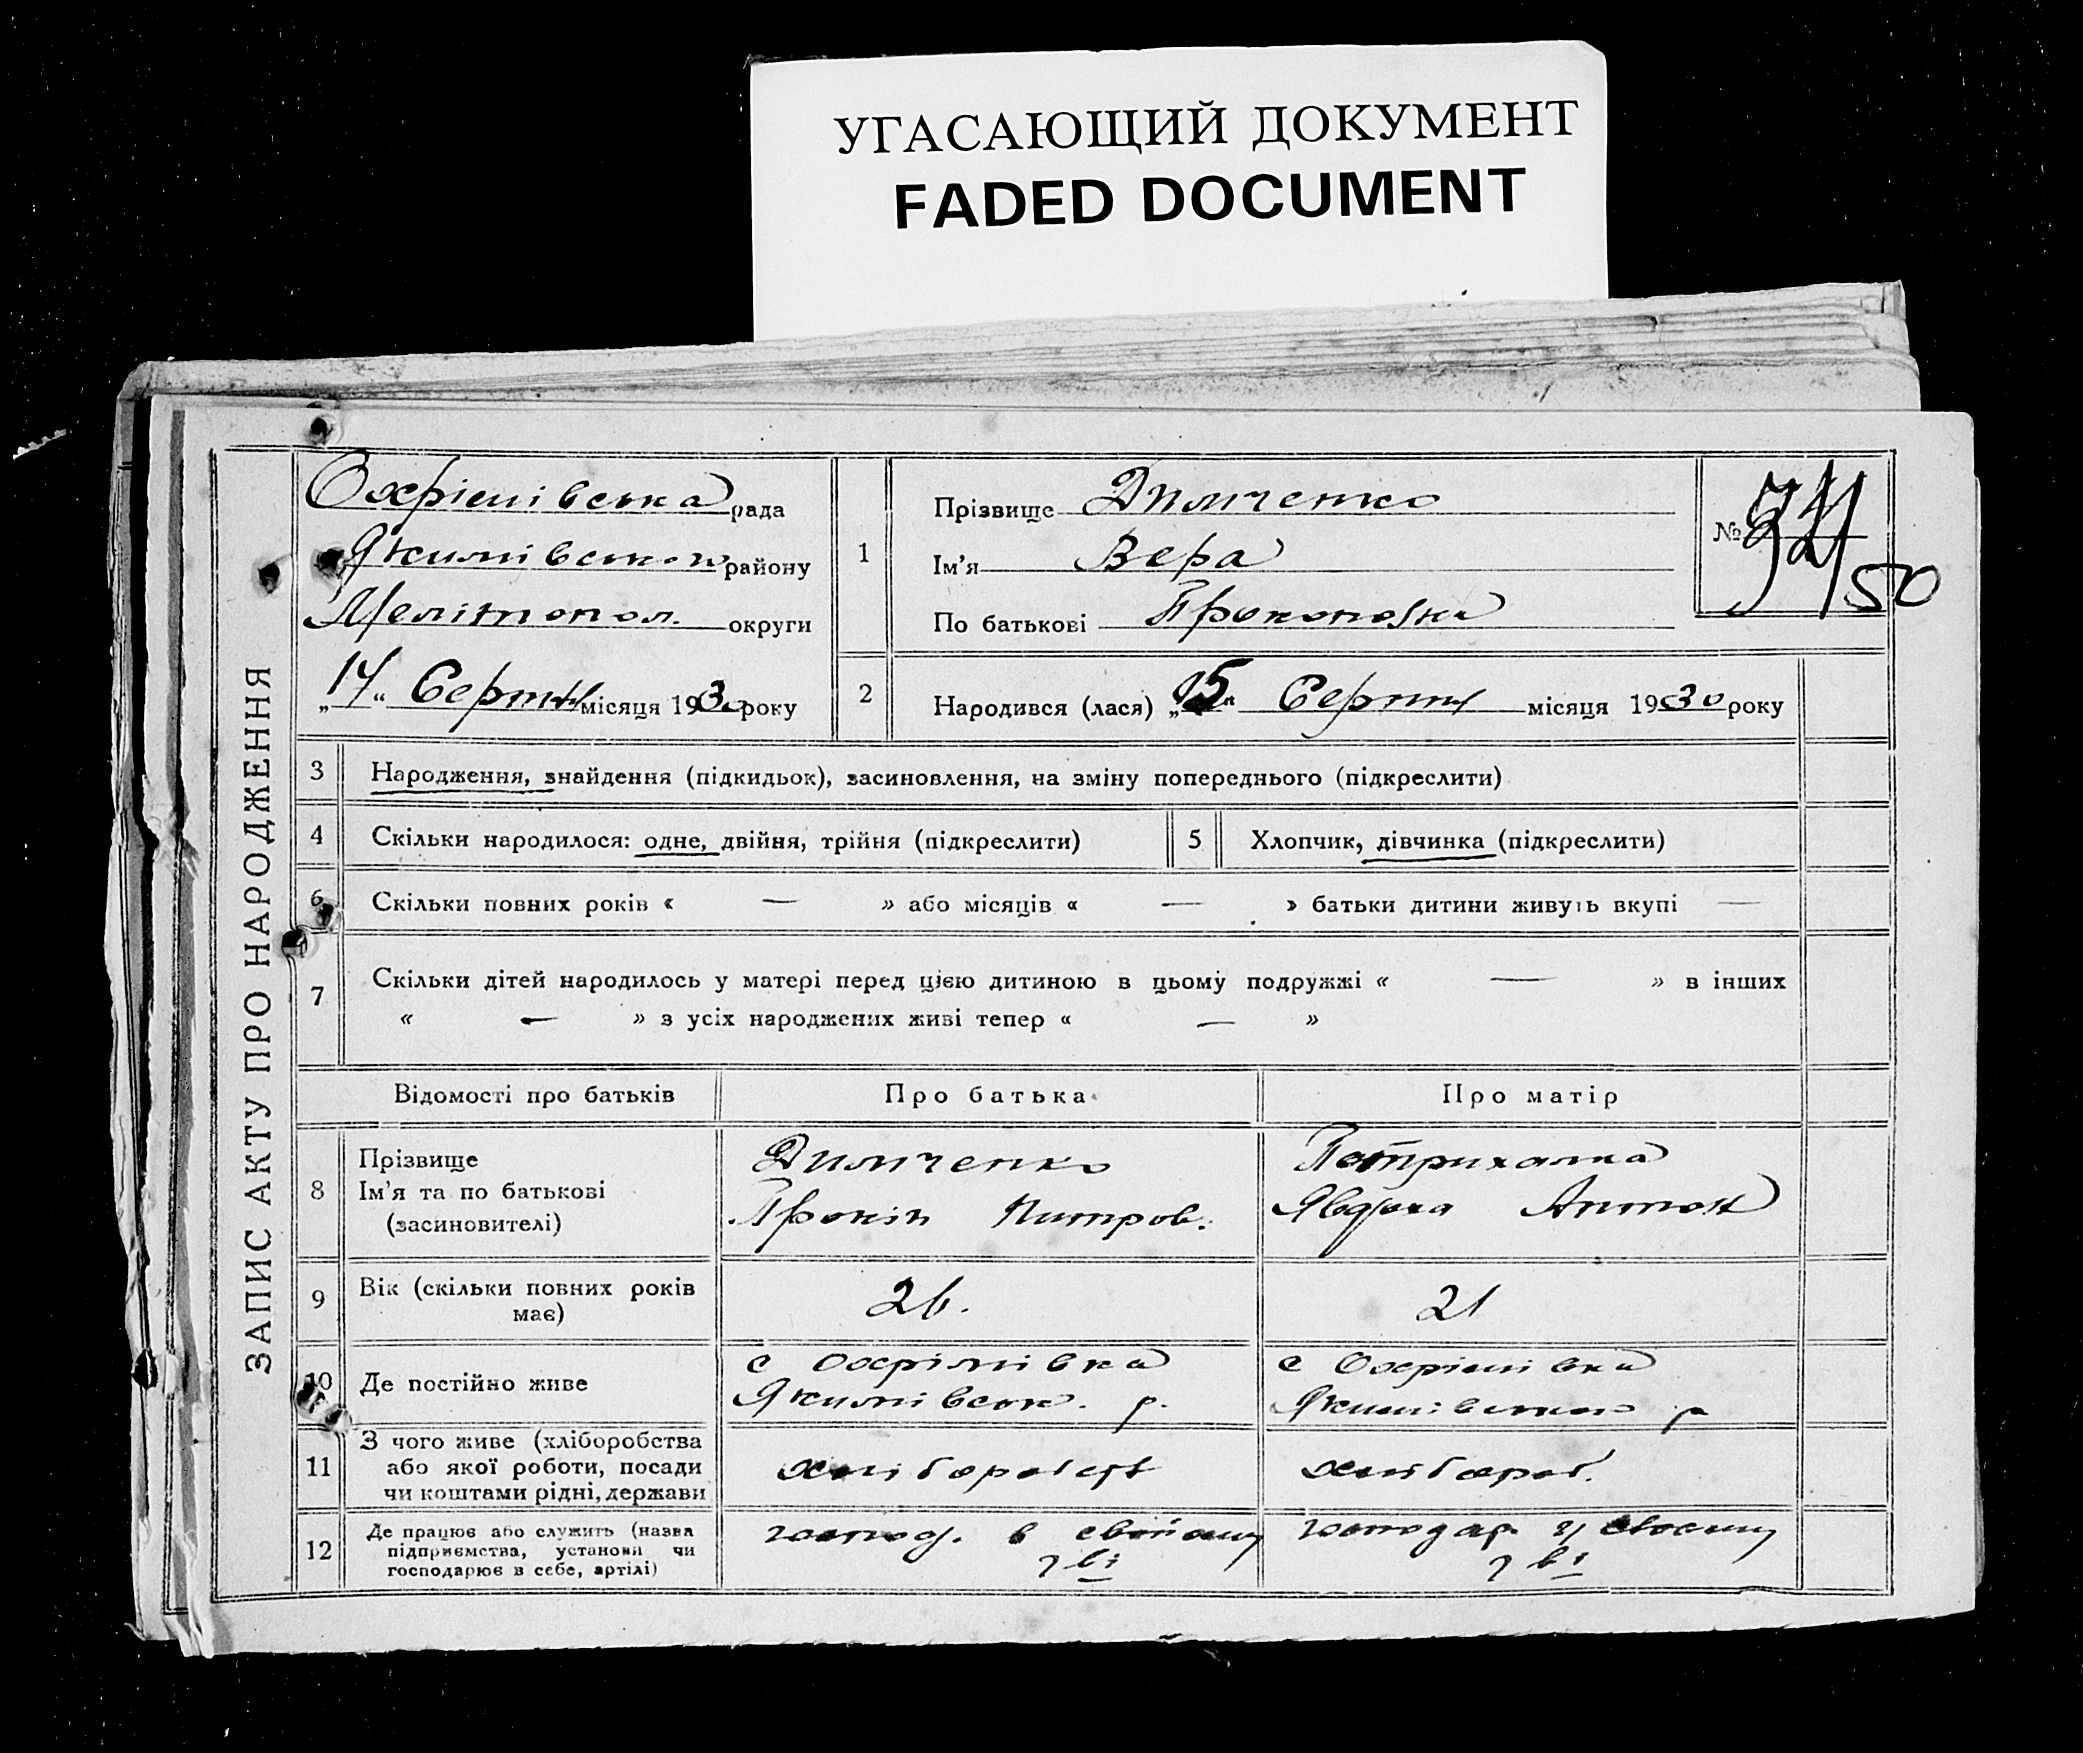 УГАСАЮЩИЙ ДОКУМЕНТ
FADED DOCUMENT
ЗАПИС АКТУ ПРО НАРОДЖЕННЯ
Охрімівська рада
Якимівськ району
Мелітопол. округи
„14“ Серпня місяця 1930 року
1
Прізвище Димченко
Ім'я Вера
По батькові Прокоповна
№
50
2
Народився (лася) „5“ Серпня місяця 1930 року
3 Народження, знайдення (підкидьок), засиновлення, на зміну попереднього (підкреслити)
4 Скільки народилося: одне, двійня, трійня (підкреслити) 5 Хлопчик, дівчинка (підкреслити)
6 Скільки повних років « — » або місяців « — » батьки дитини живуть вкупі —
7 Скільки дітей народилось у матері перед цією дитиною в цьому подружжі « — » в інших
« — » з усіх народжених живі тепер « — »
Відомості про батьків Про батька Про матір
8 Прізвище
Ім'я та по батькові
(засиновителі)
Димченко
Прокіп Питров.
Явдоха Антон
9 Вік (скільки повних років
має)
26.
21
10 Де постійно живе
с Охрімівка
Якимівськ. р.
с Охрімівка
Якимівськ р
11 З чого живе (хліборобства
або якої роботи, посади
чи коштами рідні, держави
хліборобств
хлібороб.
12 Де працює або служить (назва
підприємства, установи чи
господарює в себе, артілі)
господ. в свойому
господар у своєму